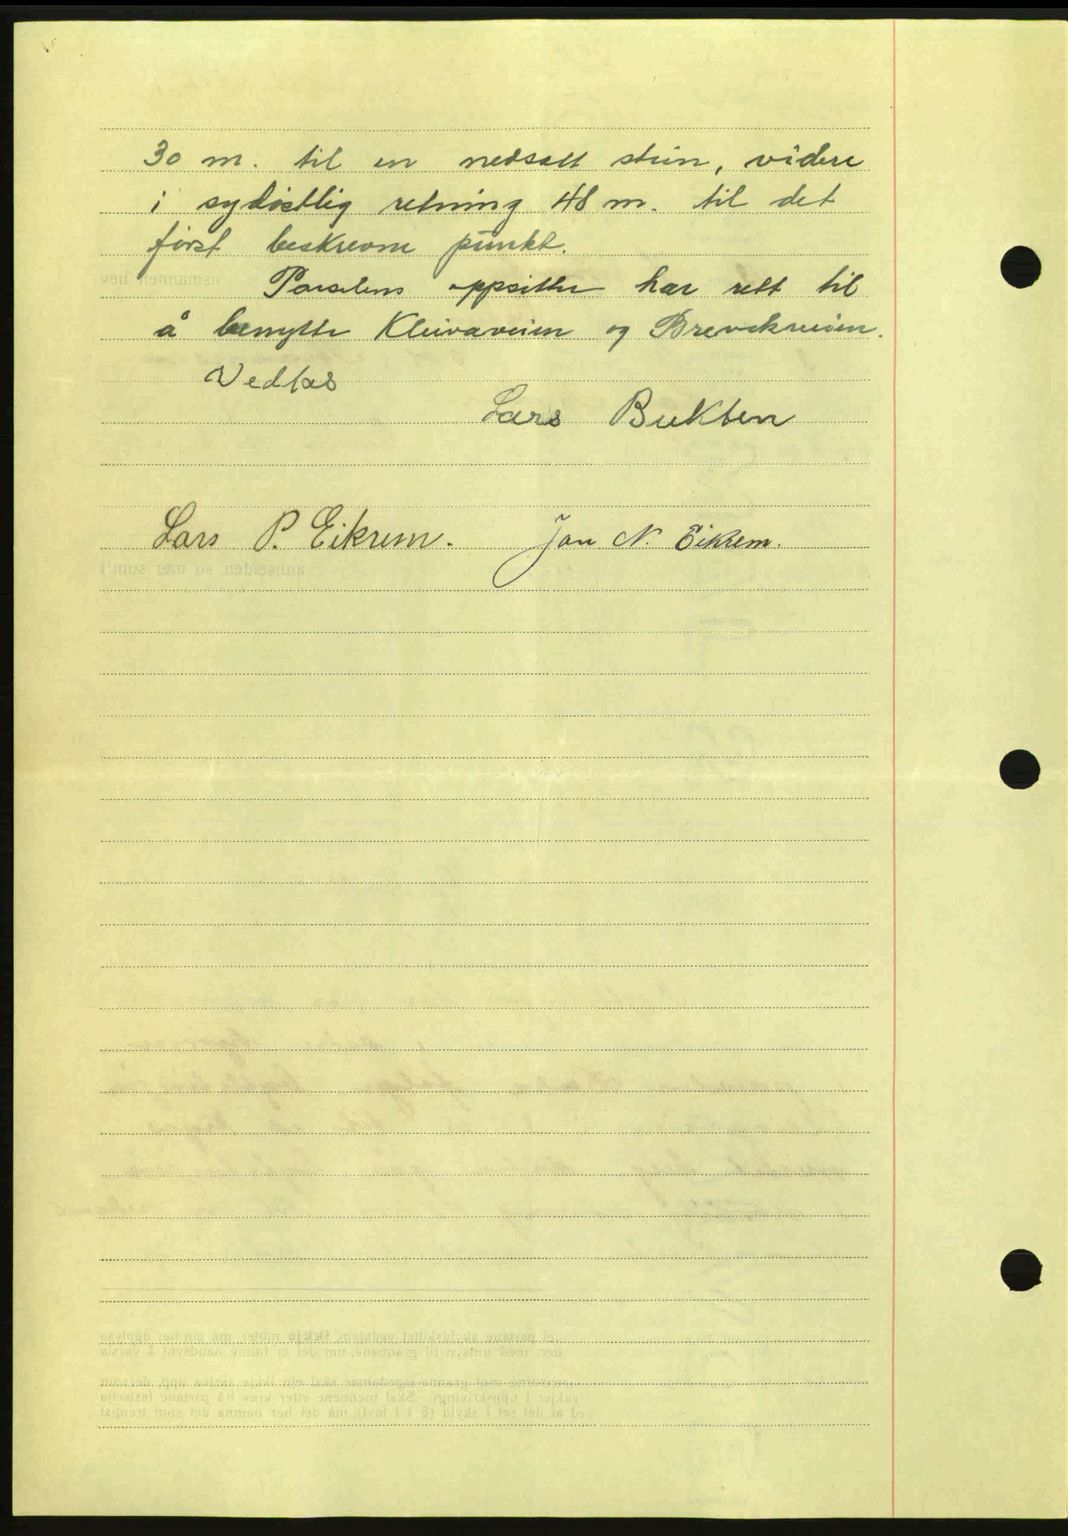 30 m. til en nedsatt stein, videre
i sydøstlig retning 48 m. til det
først beskrevne punkt.
Parselens oppsitter har rett til
å benytte Kleivaveien og Brevikveien.
Vedtas
Lars Bukten
Lars P. Eikrem. Jon N. Eikrem.